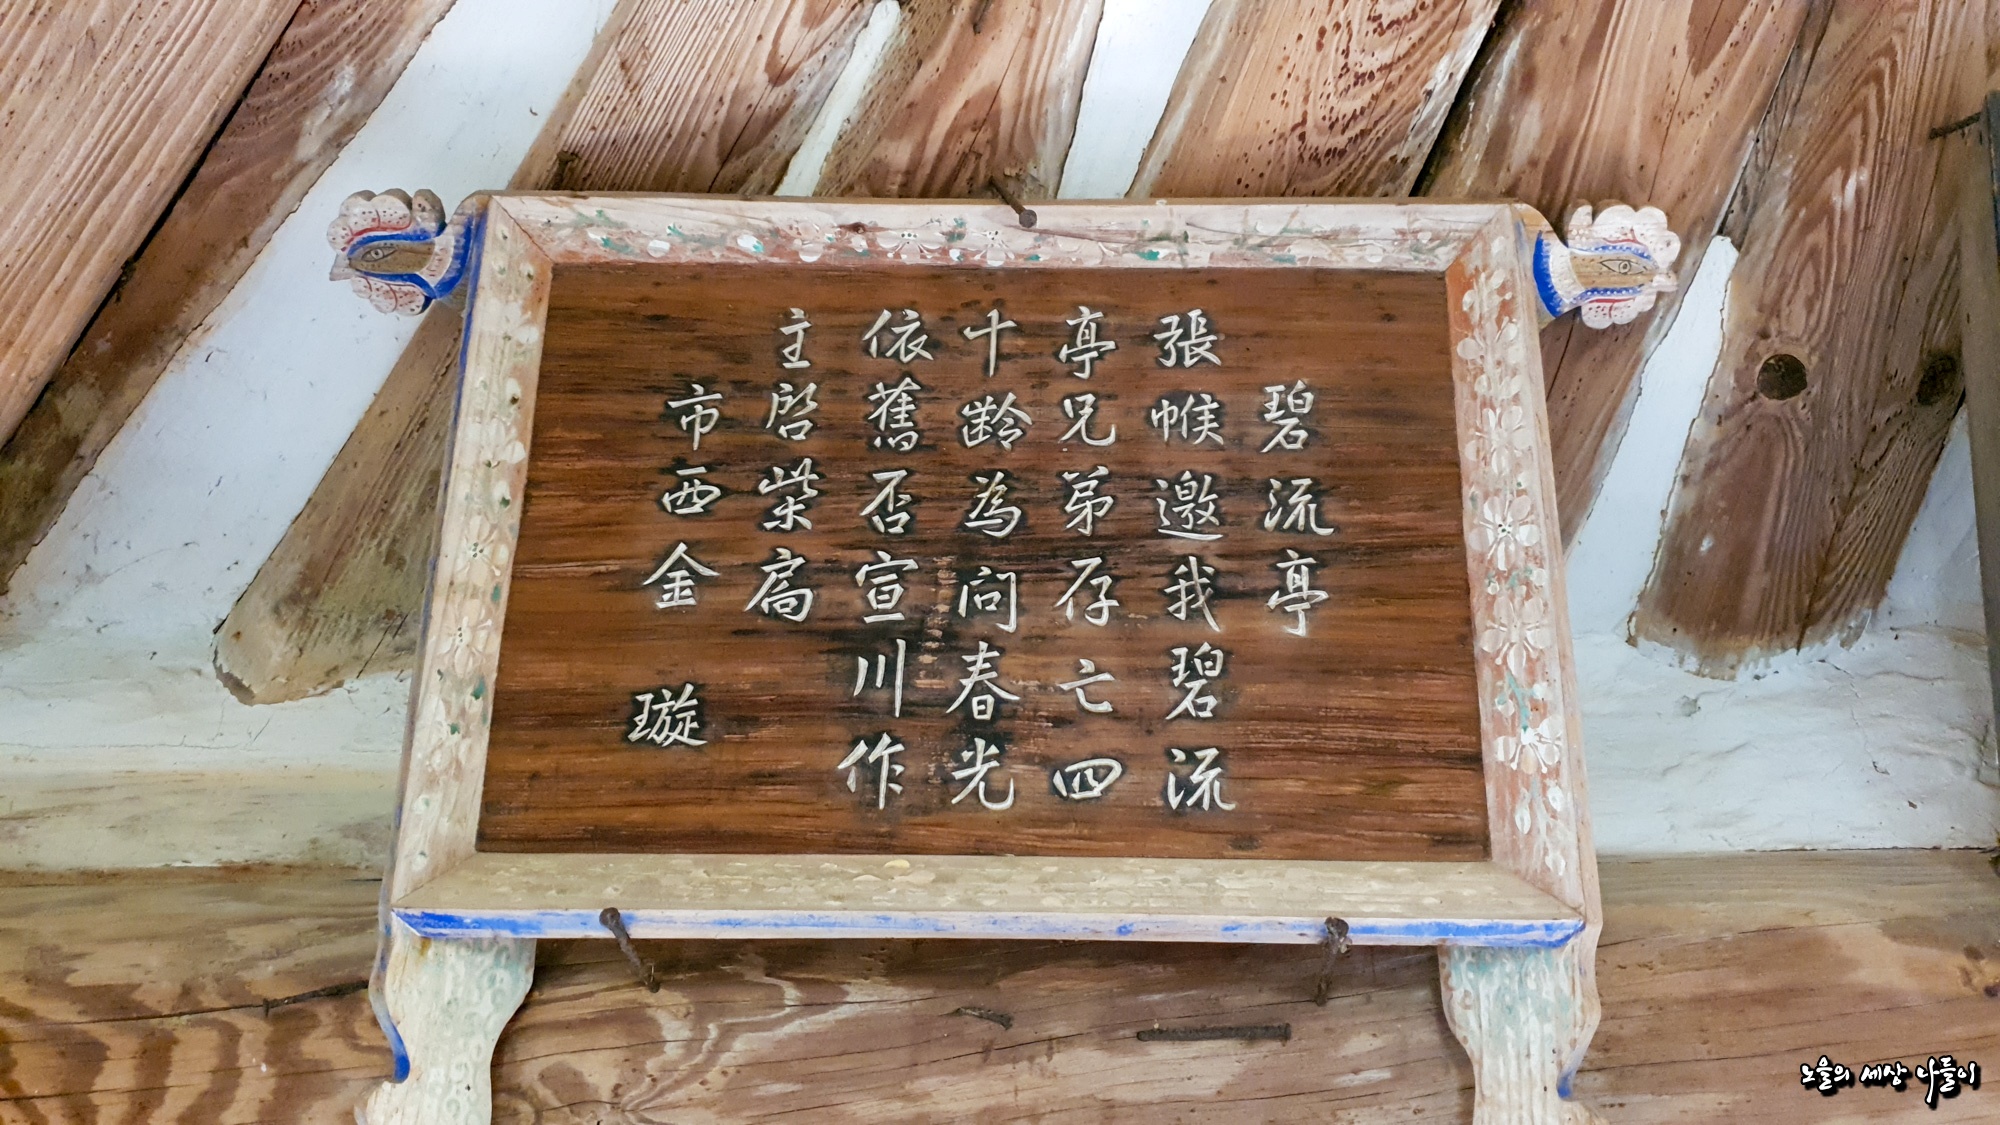 碧流亭
張帿邀我碧流
亭兄弟存亡四
十齡為問春光
依舊否宣川作
主啓柴扃
市西金 璇
노을의 세상 나들이